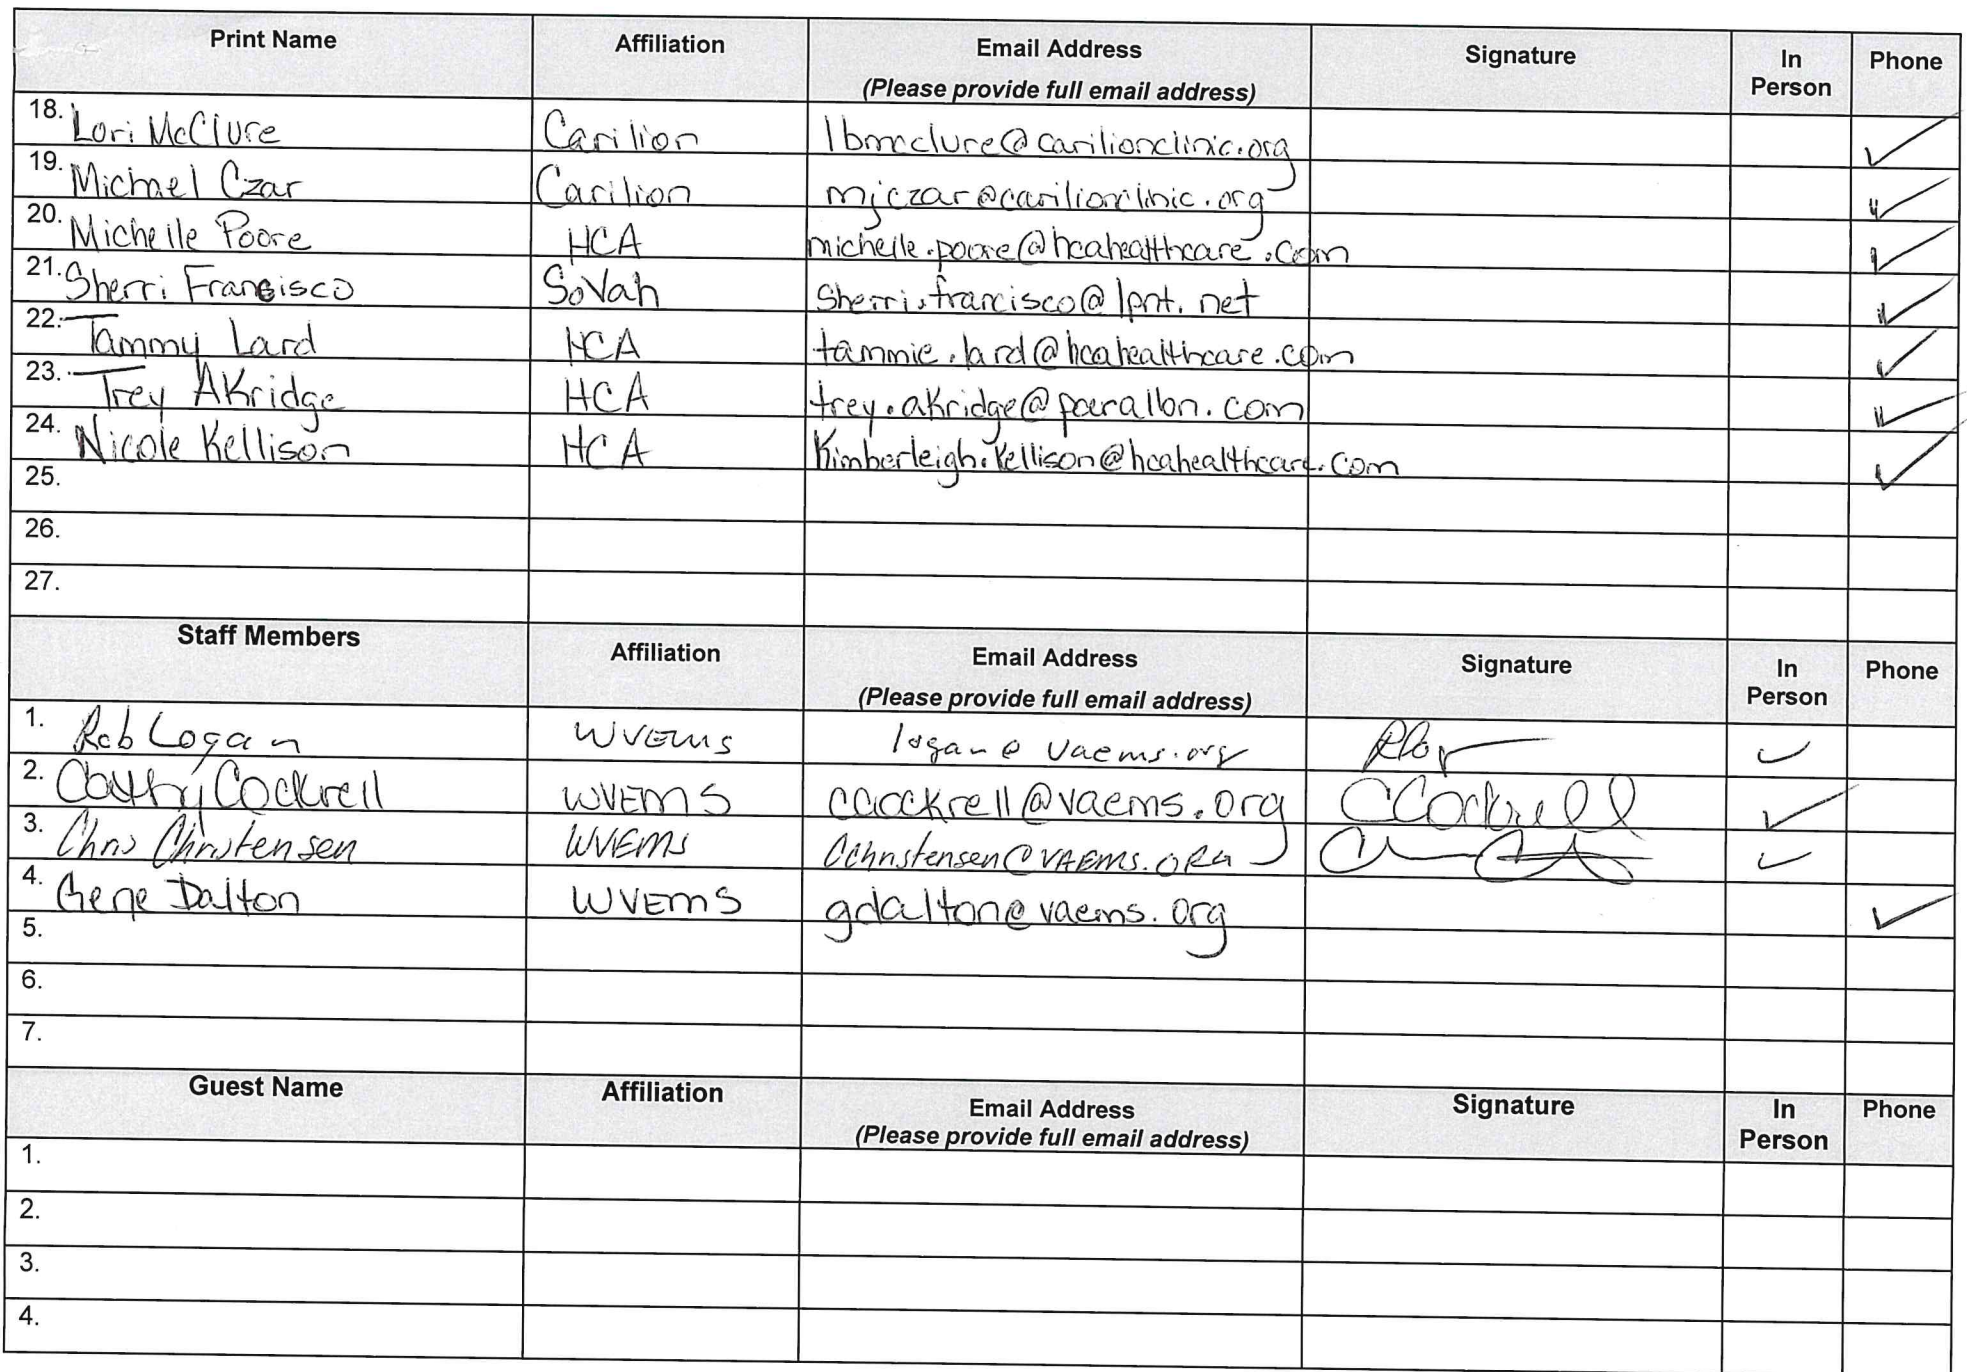 Print Name Affiliation Email Address Signature In Person Phone
(Please provide full email address)
18. Lori McClure Carilion lbmcclure@carilionclinic.org ✓
19. Michael Czar Carilion mjczar@carilionclinic.org ✓
20. Michelle Poore HCA michelle.poore@hcahealthcare.com ✓
21. Sherri Francisco SoVah sherri.francisco@lpnt.net ✓
22. Tammy Lard HCA tammie.lard@hcahealthcare.com ✓
23. Trey AKridge HCA trey.akridge@parallon.com ✓
24. Nicole Kellison HCA Kimberleigh.Kellison@hcahealthcare.com ✓
25.
26.
27.
Staff Members Affiliation Email Address Signature In Person Phone
(Please provide full email address)
1. Rob Logan WVEMS logan@vaems.org ✓
2. Cathy Cockrell WVEMS ccockrell@vaems.org CCockrell ✓
3. Chris Christensen WVEMS cchristensen@VAEMS.ORG ✓
4. Gene Dalton WVEMS gdalton@vaems.org ✓
5.
6.
7.
Guest Name Affiliation Email Address Signature In Person Phone
(Please provide full email address)
1.
2.
3.
4.